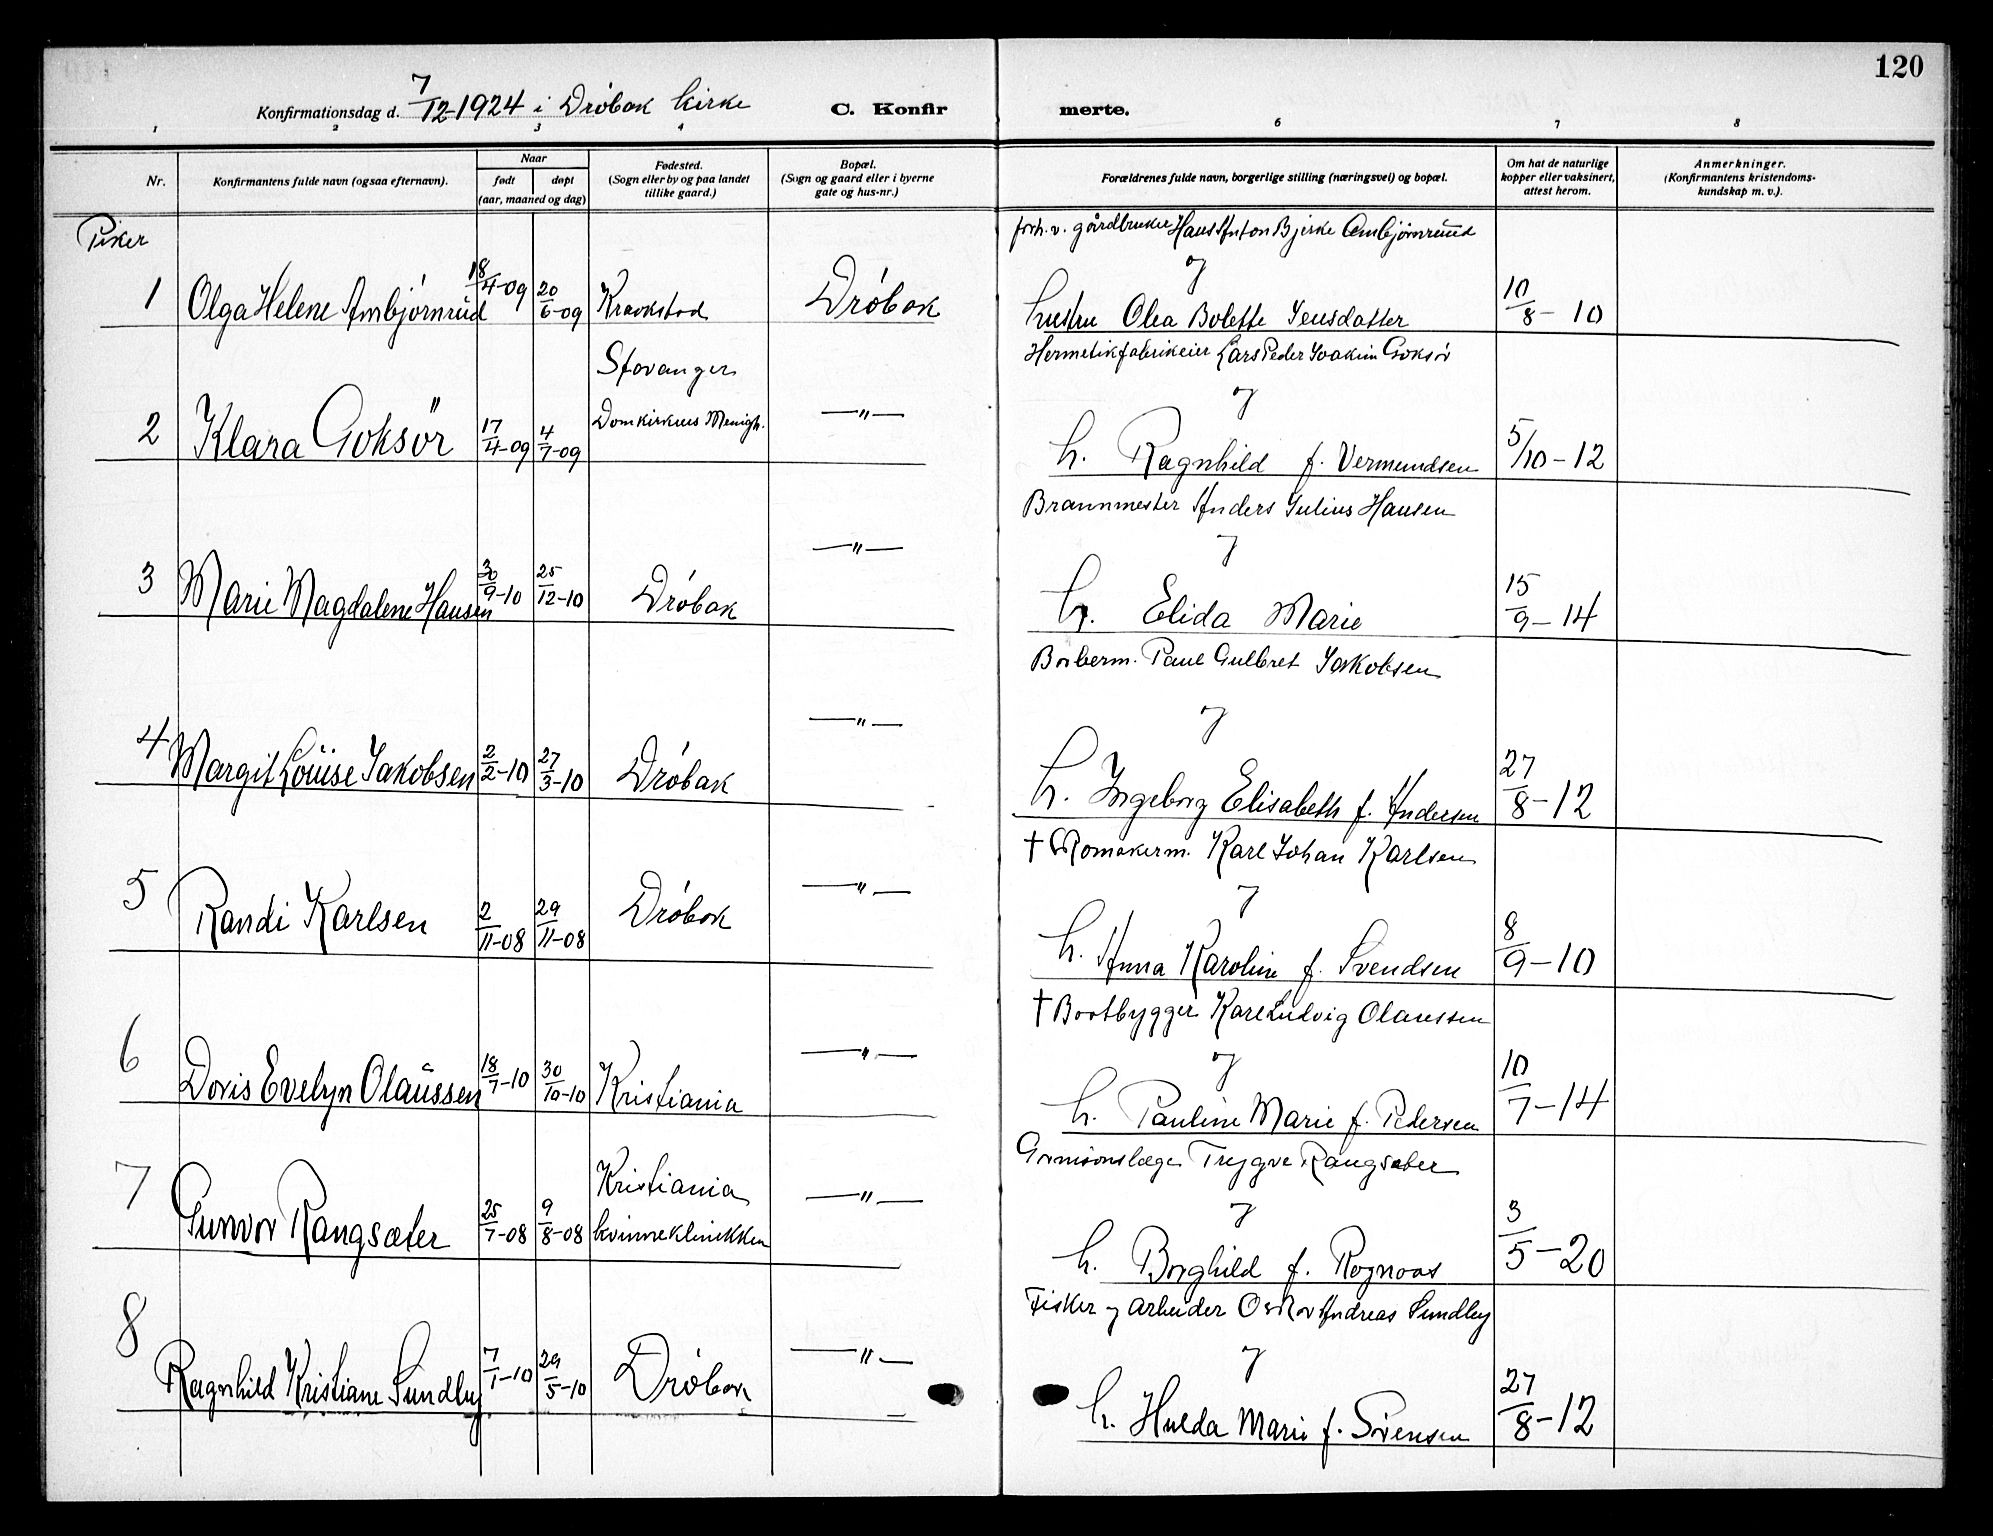 120
Konfirmationsdag d. 7/12 1924 i Drøbak kirke C. Konfirmerte.
1 2 3 4 6 7 8
Nr.
Konfirmantens fulde navn (ogsaa efternavn).
Naar
født døpt
(aar, maaned og dag)
Fødested.
(Sogn eller by og paa landet
tillike gaard.)
Bopæl.
(Sogn og gaard eller i byerne
gate og hus-nr.)
Forældrenes fulde navn, borgerlige stilling (næringsvei) og bopæl.
Om hat de naturlige
kopper eller vaksinert,
attest herom.
Anmerkninger.
(Konfirmantens kristendoms-
kundskap m. v.).
Piker
forh. v. gårdbruker Hans Anton Bjerke Ambjørnrud
og
1 Olga Helene Ambjørnrud 18/4-09 20/6-09 Kraakstad Drøbak hustru Olea Bolette Jensdatter 10/8-10
Stavanger Hermetikfabrikeier Lars Peder Joakim Goksør
Domkirkens Menigh. —"— og
2 Klara Goksør 17/4-09 4/7-09 h. Ragnhild f. Vermundsen 5/10-12
Brannmester Anders Julius Hansen
—"— og
3 Marie Magdalene Hansen 30/9-10 25/12-10 Drøbak h. Elida Marie 15/9-14
Barberm. Paul Gulbret Jakobsen
—"— og
4 Margit Louise Jakobsen 2/2-10 27/3-10 Drøbak h. Ingeborg Elisabeth f. Andersen 27/8-12
† Romakerm. Karl Johan Karlsen
—"— og
5 Randi Karlsen 2/11-08 29/11-08 Drøbak h. Anna Karoline f. Svendsen 8/9-10
† Baatbygger Karl Ludvig Olaussen
—"— og
6 Doris Evelyn Olaussen 18/7-10 30/10-10 Kristiania h. Pauline Marie f. Pedersen 10/7-14
Kristiania Garnisonslæge Trygve Rangsæter
—"— og
7 Gunvor Rangsæter 25/7-08 9/8-08 kvinneklinikken h. Borghild f. Rognaas 3/5-20
Fisker og arbeider Oskar Andreas Sundby
—"— og
8 Ragnhild Kristiane Sundby 7/1-10 29/5-10 Drøbak h. Hulda Marie f. Sørensen 27/8-12